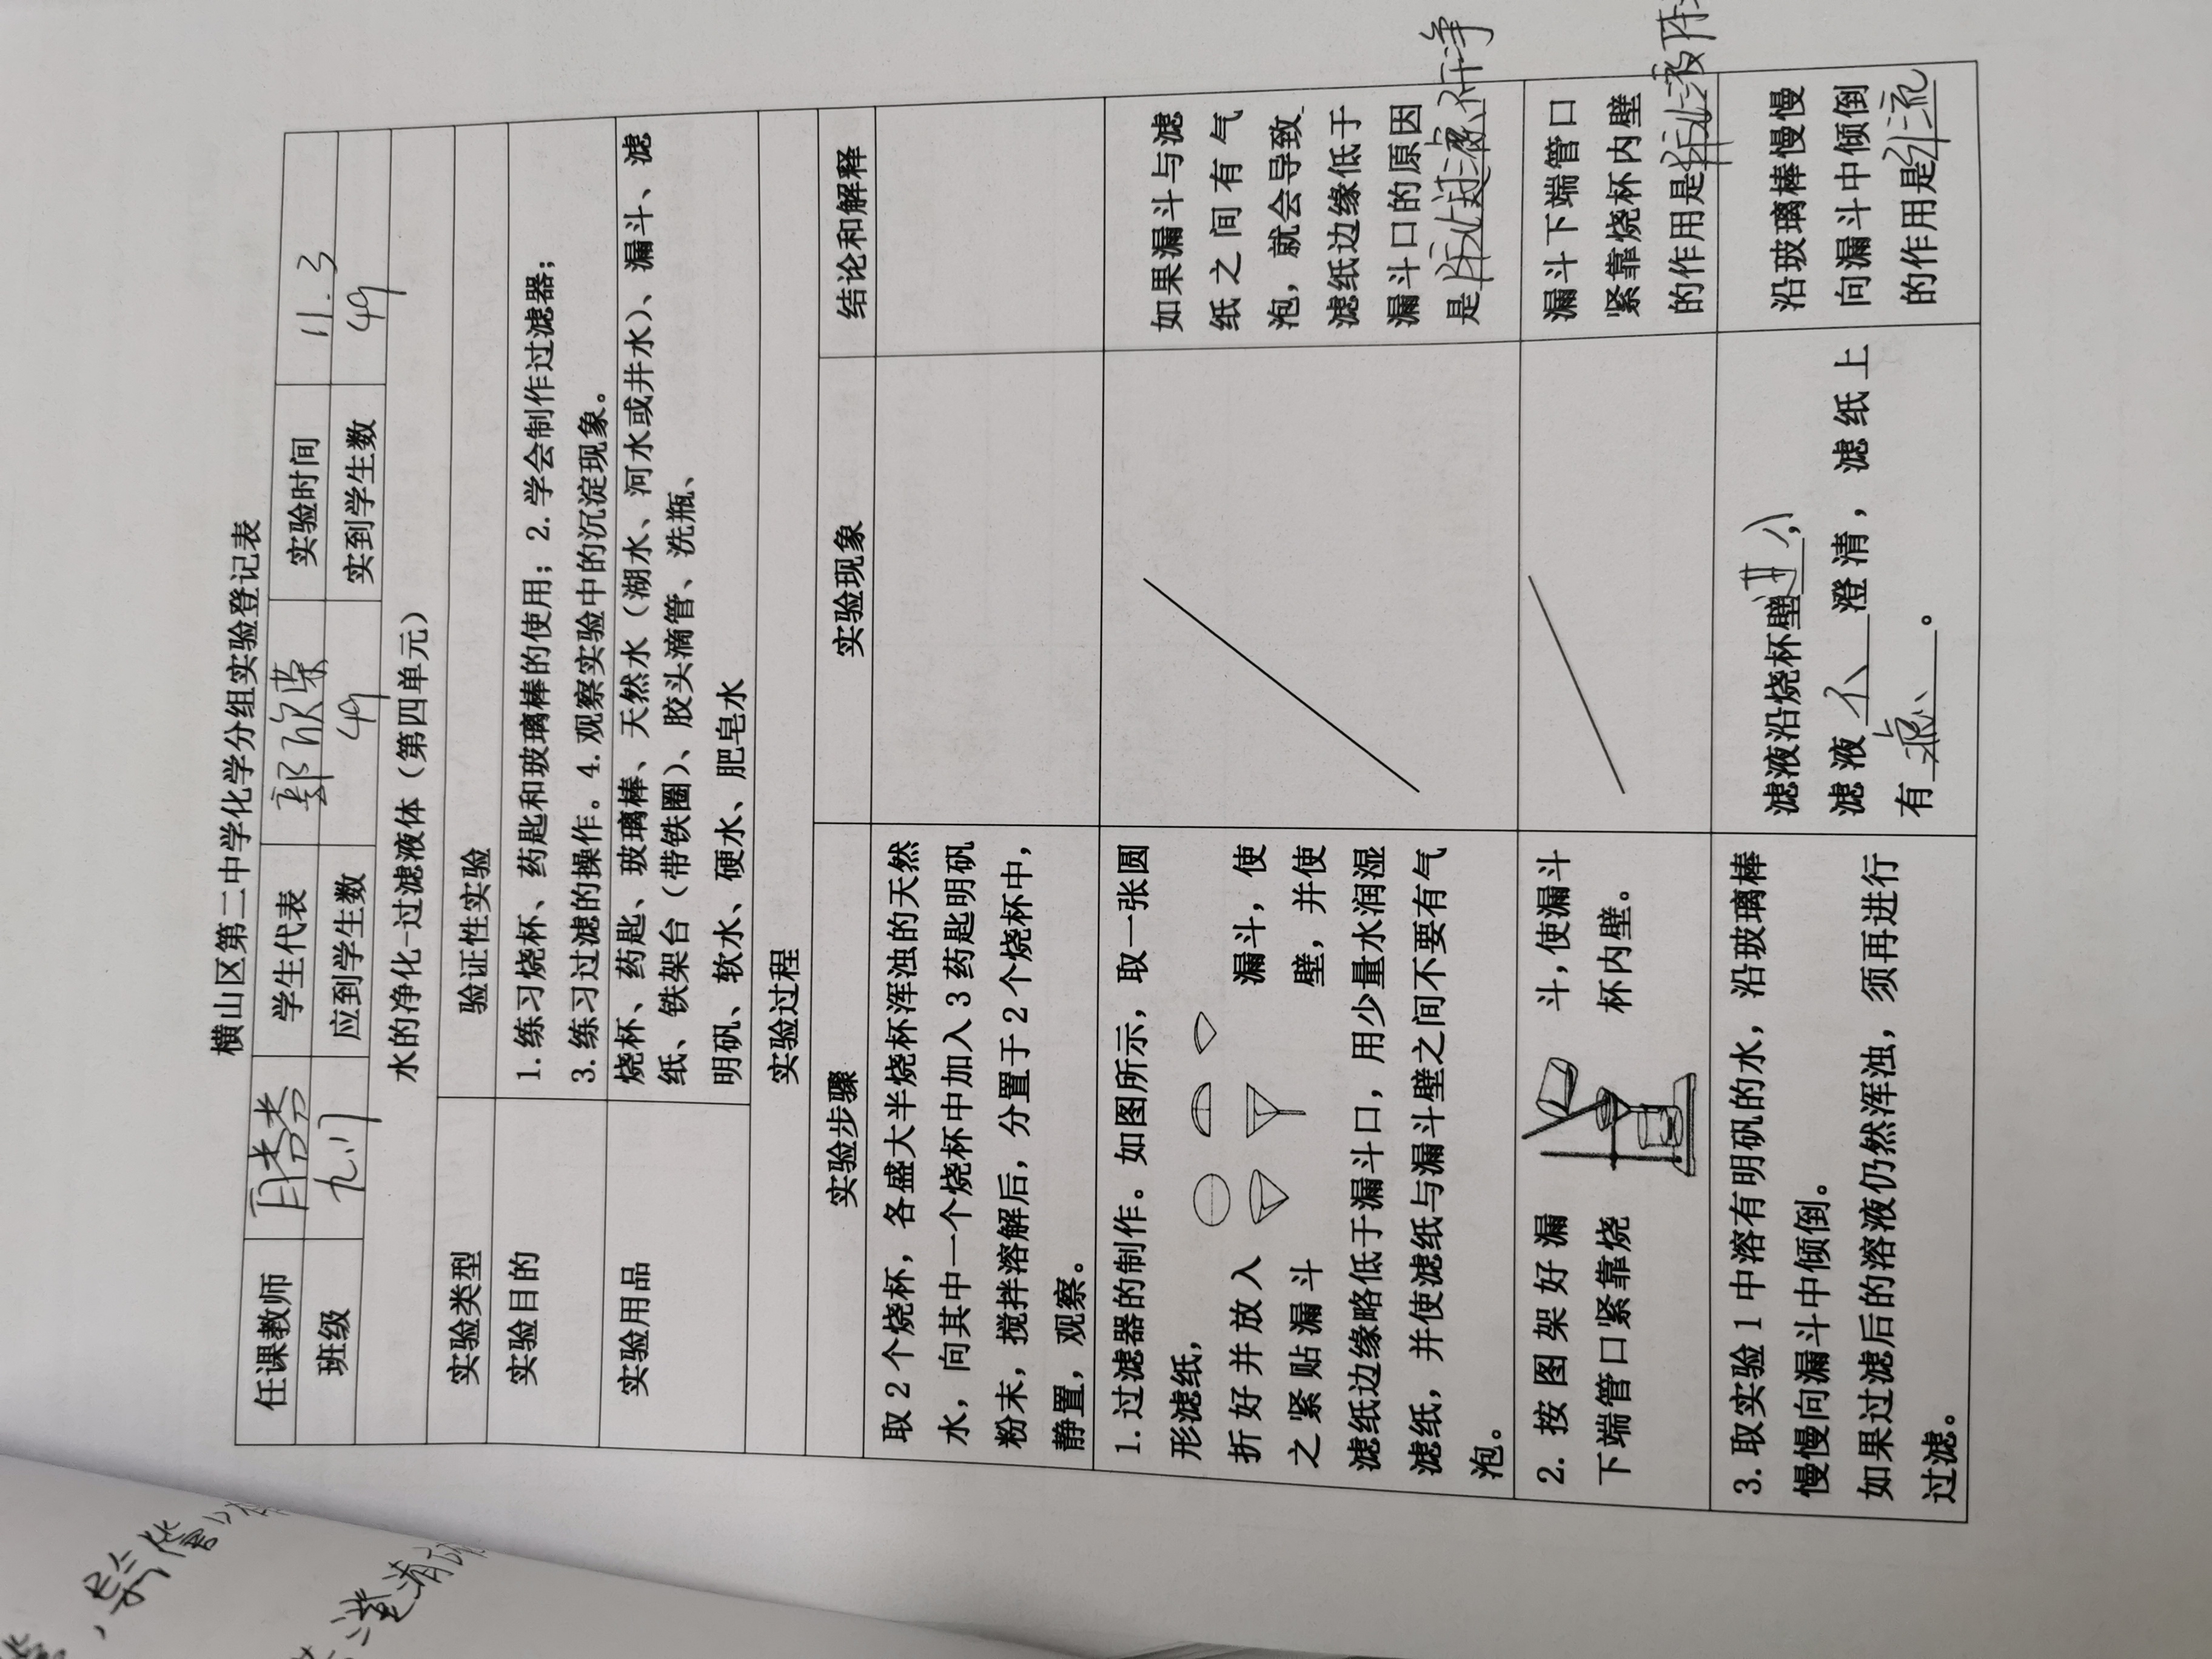 横山区第二中学化学分组实验登记表
任课教师 学生代表 郭欣荣 实验时间 11.3
班级 九.1 应到学生数 49 实到学生数 49
水的净化-过滤液体（第四单元）
实验类型 验证性实验
实验目的 1.练习烧杯、药匙和玻璃棒的使用；2.学会制作过滤器；
3.练习过滤的操作。4.观察实验中的沉淀现象。
实验用品 烧杯、药匙、玻璃棒、天然水（湖水、河水或井水）、漏斗、滤
纸、铁架台（带铁圈）、胶头滴管、洗瓶、
明矾、软水、硬水、肥皂水
实验过程
实验步骤 实验现象 结论和解释
取2个烧杯，各盛大半烧杯浑浊的天然
水，向其中一个烧杯中加入3药匙明矾
粉末，搅拌溶解后，分置于2个烧杯中，
静置，观察。
1.过滤器的制作。如图所示，取一张圆
形滤纸，
折好并放入 漏斗，使
之紧贴漏斗 壁，并使
滤纸边缘略低于漏斗口，用少量水润湿
滤纸，并使滤纸与漏斗壁之间不要有气
泡。
如果漏斗与滤
纸之间有气
泡，就会导致
滤纸边缘低于
漏斗口的原因
是防止过滤不干净
2. 按图架好漏 斗，使漏斗
下端管口紧靠烧 杯内壁。
漏斗下端管口
紧靠烧杯内壁
的作用是防止液
3.取实验1中溶有明矾的水，沿玻璃棒
慢慢向漏斗中倾倒。
如果过滤后的溶液仍然浑浊，须再进行
过滤。
滤液沿烧杯壁进入，
滤液不澄清，滤纸上
有。
沿玻璃棒慢慢
向漏斗中倾倒
的作用是引流
，导气管口